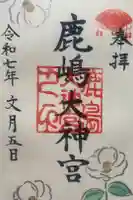 奉拝
鹿嶋大神宮
令和七年文月五日